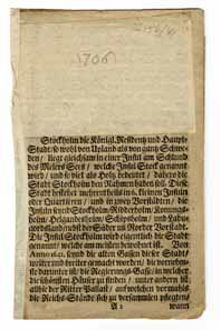 1706
Stockholm die Königl. Residentz und Haupt-
Stadt/ so wohl von Upland als von gantz Schwe-
den/ liegt gleichsam in einer Insul am Schlund
des Melers Sees/ welche Insul Stock genannt
wird/ und so viel als Holtz bedeutet/ dahero die
Stadt Stockholm den Nahmen haben soll. Diese
Stadt bestehet mehrentheils in 6. kleinen Insuln
oder Quartieren/ und in zwey Vorstädten/ die
Insuln seynd Stockholm/ Ridderholm/
holm/ Helgandesholm/ Schipsholm/ und
und der Süder un Norder Vorstadt.
Die Insul Stockholm wird eigentlich die Stadt
genannt/ welche am meisten bewohnet ist. Von
Anno 1641. seynd die alten Gassen dieser Stadt/
weiter und breiter gemacht worden; die vornehm-
ste darunter ist/ die Regierungs-Gasse/ in welcher
die schönsten Häuser zu finden/ unter andern ist
allda der Ritter Pallast/ auf welchen vormahls
die Reichs-Stände sich zu versammlen pflegten/
A 2 wann